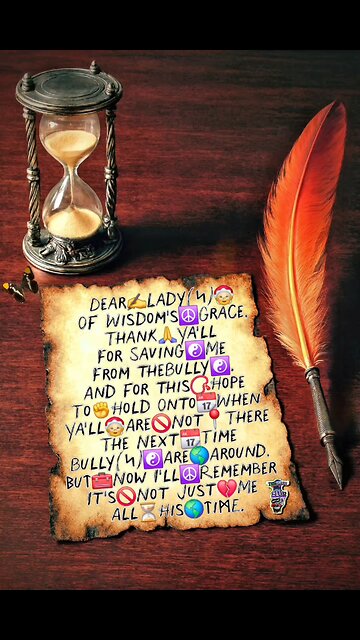 DEAR✍️LADY(и)🤶
OF WISDOM'S☮️GRACE.
THANK🙏YA'LL
FOR SAVING☯️ME
FROM THEBULLY☯️.
AND FOR THIS📿HOPE
TO✊HOLD ONTO📅WHEN
YA'LL🤶ARE🚫NOT📍THERE
THE NEXT📅TIME
BULLY(и)☯️ARE🌎AROUND.
BUT🧰NOW I'LL☮️REMEMBER
IT'S🚫NOT JUST💔ME
ALL⏳HIS🌎TIME.